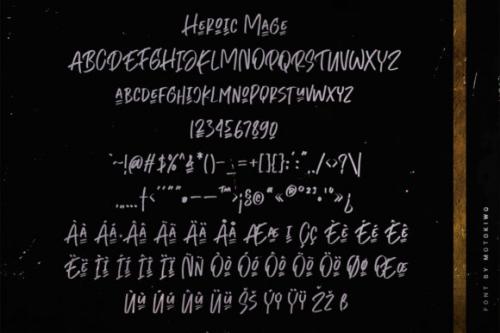 Heroic Mage
ABCDEFGHIJKLMNOPQRSTUVWXYZ
ABCDEFGHIJKLMNOPQRSTUVWXYZ
1234567890
`~!@#$%^&*()-_=+[]{};:'",./<>?\|
ÀàÁáÂâÃãÄäÅåÆæ I Çç Èè Éé Êê
Ëë Ìì Íí Îî Ïï Ññ Òò Óó Ôô Õõ Öö Øø Œœ
Ùù Úú Ûû Üü Šš Ýý Ÿÿ Žž ß
FONT BY MOTOKIWO